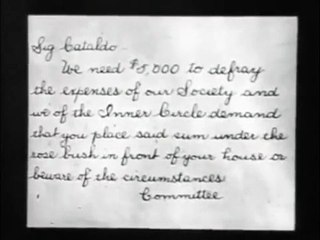 Sig Cataldo
We need $5,000 to defray
the expenses of our Society and
we of the Inner Circle demand
that you place said sum under the
rose bush in front of your house or
beware of the circumstances
Committee